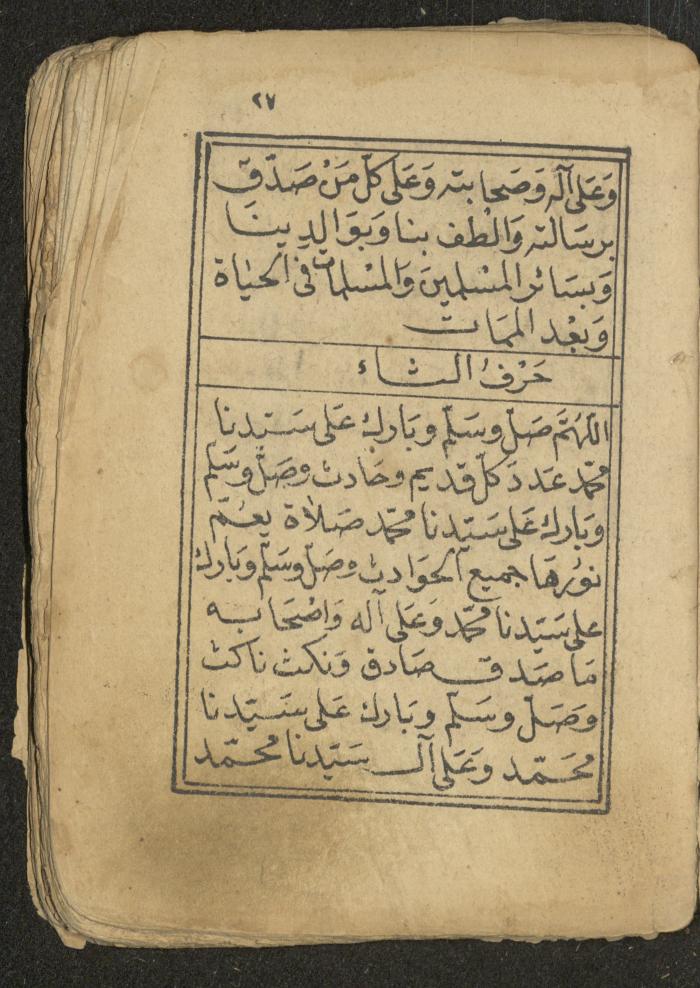 ٢٧
وَعَلى آله وَصَحابته وَعَلى كلّ مَنْ صَدّق
برسَالته وَالْطف بنا وَبوَالدينَا
وَبسَائر المسْلمينَ وَالمسْلمات فى الحيَاة
وَبعْد الممَات
حَرْفُ الثاء
اللّهُمَّ صَلّ وسَلّم وبَارك عَلى سَيّدنا
محمّد عَددَ كلّ قديم وحَادث وصَلّ وسَلم
وبَارك عَلى سَيّدنا محمّد صَلاة يعُمّ
نورُهَا جميع الحوَادث وصَلّ وسَلّم وبَارك
على سَيّدنا محمّد وَعَلى آله وَاصْحَابه
مَا صَدق صَادق وَنكث ناكث
وصَلّ وسَلّم وبَارك عَلى سَيّدنا
محَمّد وَعَلى آل سَيّدنا محمّد